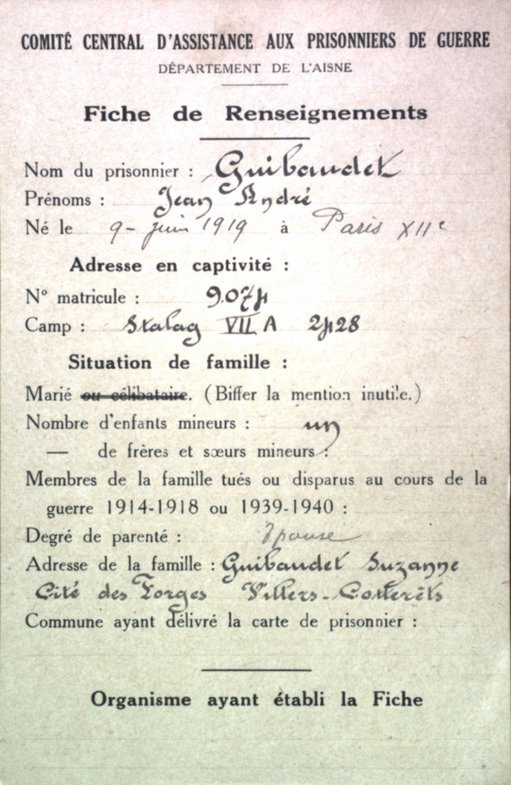 COMITÉ CENTRAL D'ASSISTANCE AUX PRISONNIERS DE GUERRE
DÉPARTEMENT DE L'AISNE
Fiche de Renseignements
Nom du prisonnier : Guibaudet
Prénoms : Jean André
Né le 9 - juin 1919 à Paris XIIe
Adresse en captivité :
N° matricule : 9074
Camp : Stalag VII A 2428
Situation de famille :
Marié ou célibataire. (Biffer la mention inutile.)
Nombre d'enfants mineurs : un
— de frères et sœurs mineurs :
Membres de la famille tués ou disparus au cours de la
guerre 1914-1918 ou 1939-1940 :
Degré de parenté : Epouse
Adresse de la famille : Guibaudet Suzanne
Cité des Forges Villers-Cotterêts
Commune ayant délivré la carte de prisonnier :
Organisme ayant établi la Fiche